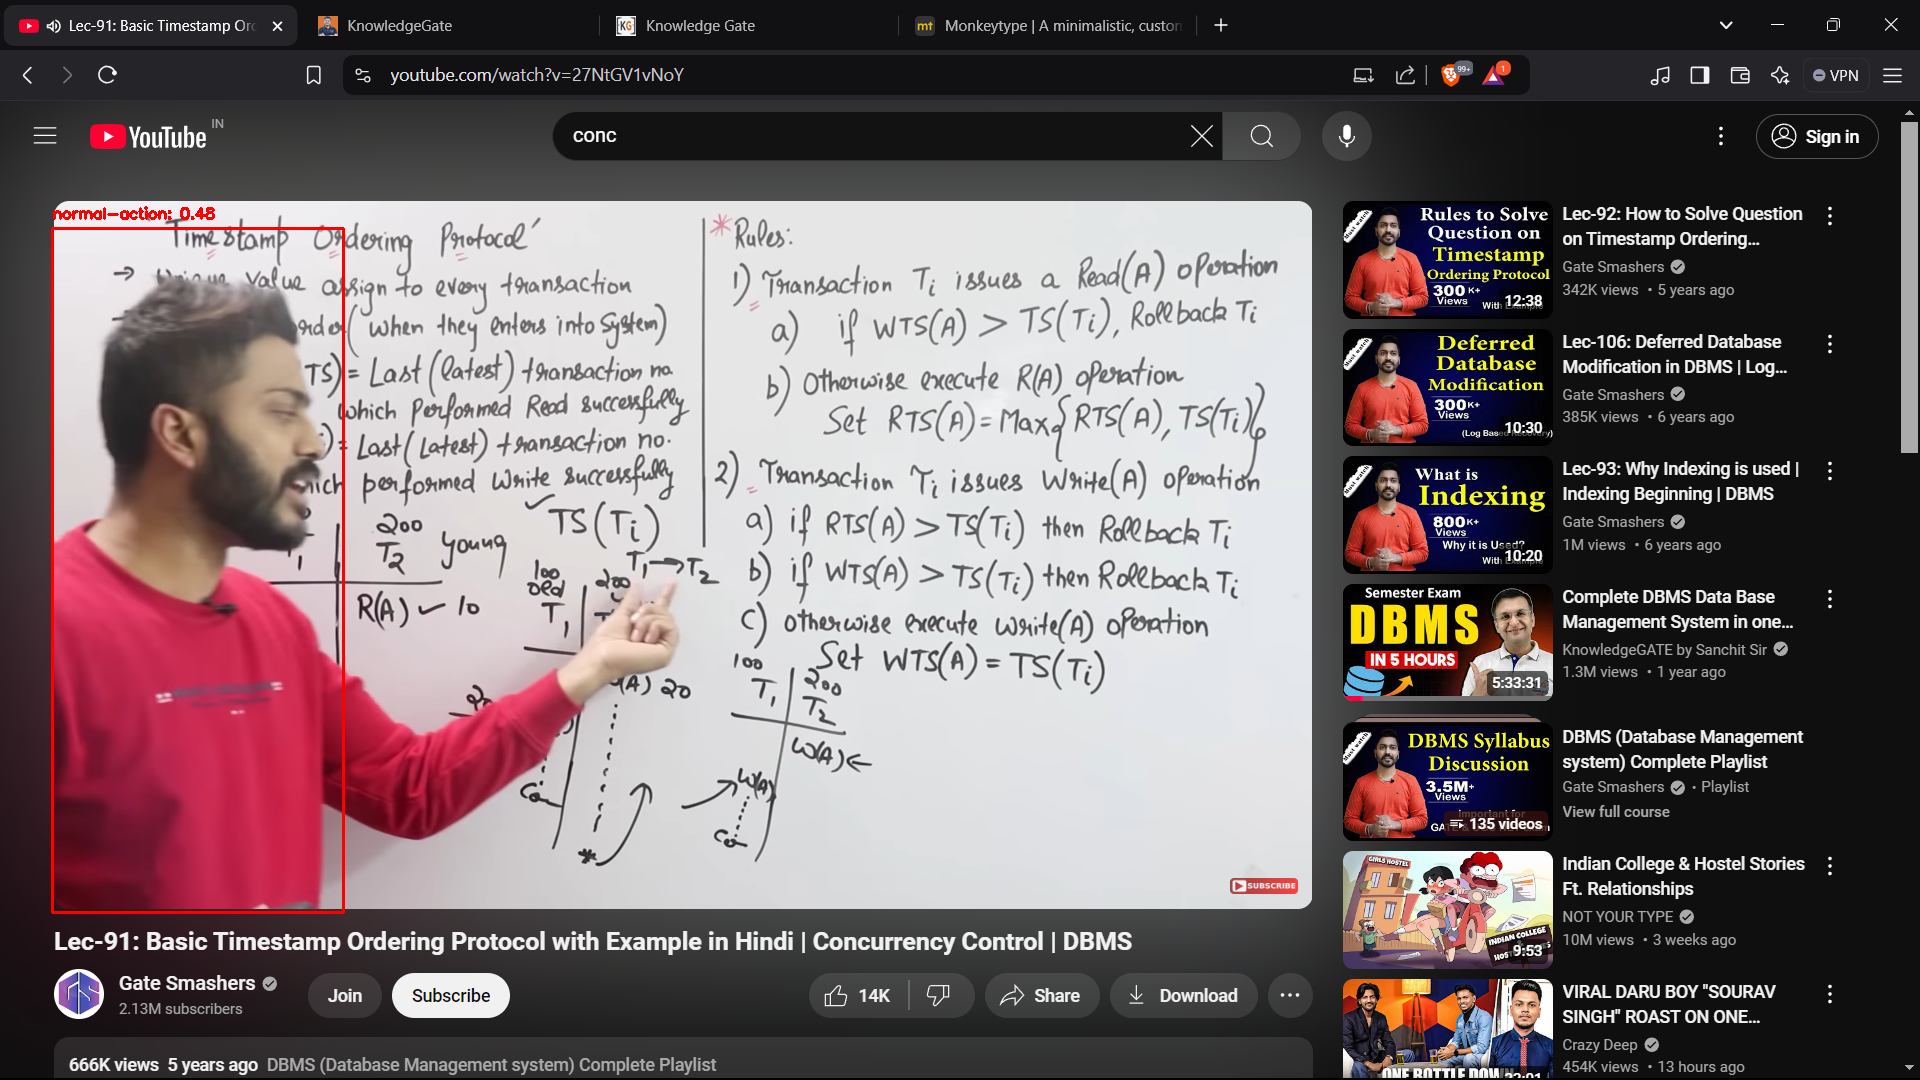 Lec-91: Basic Timestamp Orc
KnowledgeGate
Knowledge Gate
mt Monkeytype | A minimalistic, custon
youtube.com/watch?v=27NtGV1vNoY
99+
1
VPN
YouTube IN
conc
Sign in
normal-action: 0.48
Timestamp Ordering Protocol
→ Unique value assign to every transaction
order (when they enters into System)
TS) = Last (latest) transaction no
which Performed Read successfully
) = Last (Latest) transaction no.
which performed Write Successfully
TS(Ti)
200
T2 young
R(A) ✓ 10
100
old
T1
200
T1 → T2
(A) 20
Co
*
* Rules:
1) Transaction Ti issues a Read(A) operation
a) if WTS(A) > TS(Ti), Rollback Ti
b) Otherwise execute R(A) operation
Set RTS(A) = Max{RTS(A), TS(Ti)}
2) Transaction Ti issues Write(A) operation
a) if RTS(A) > TS(Ti) then Rollback Ti
b) if WTS(A) > TS(Ti) then Rollback Ti
c) otherwise execute write(A) operation
Set WTS(A) = TS(Ti)
100 200
T1 T2
W(A) ←
W(A)
Co
SUBSCRIBE
Lec-91: Basic Timestamp Ordering Protocol with Example in Hindi | Concurrency Control | DBMS
Gate Smashers
2.13M subscribers
Join
Subscribe
14K
Share
Download
666K views 5 years ago DBMS (Database Management system) Complete Playlist
Must watch
Rules to Solve
Question on
Timestamp
Ordering Protocol
300 K+
Views
12:38
Lec-92: How to Solve Question
on Timestamp Ordering...
Gate Smashers
342K views • 5 years ago
Must watch
Deferred
Database
Modification
300 K+
Views
(Log Based Recovery)
10:30
Lec-106: Deferred Database
Modification in DBMS | Log...
Gate Smashers
385K views • 6 years ago
Must watch
What is
Indexing
800 K+
Views
Why it is Used?
10:20
Lec-93: Why Indexing is used |
Indexing Beginning | DBMS
Gate Smashers
1M views • 6 years ago
Semester Exam
DBMS
IN 5 HOURS
5:33:31
Complete DBMS Data Base
Management System in one...
KnowledgeGATE by Sanchit Sir
1.3M views • 1 year ago
Must watch
DBMS Syllabus
Discussion
3.5M+
Views
Important for
135 videos
DBMS (Database Management
system) Complete Playlist
Gate Smashers • Playlist
View full course
GIRLS HOSTEL
INDIAN COLLEGE
9:53
Indian College & Hostel Stories
Ft. Relationships
NOT YOUR TYPE
10M views • 3 weeks ago
ONE BOTTLE DOWN
VIRAL DARU BOY "SOURAV
SINGH" ROAST ON ONE...
Crazy Deep
454K views • 13 hours ago